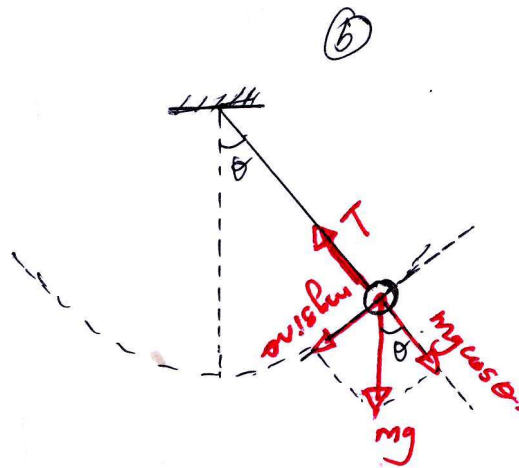 b
θ
T
mg sinθ
mg cosθ
θ
mg